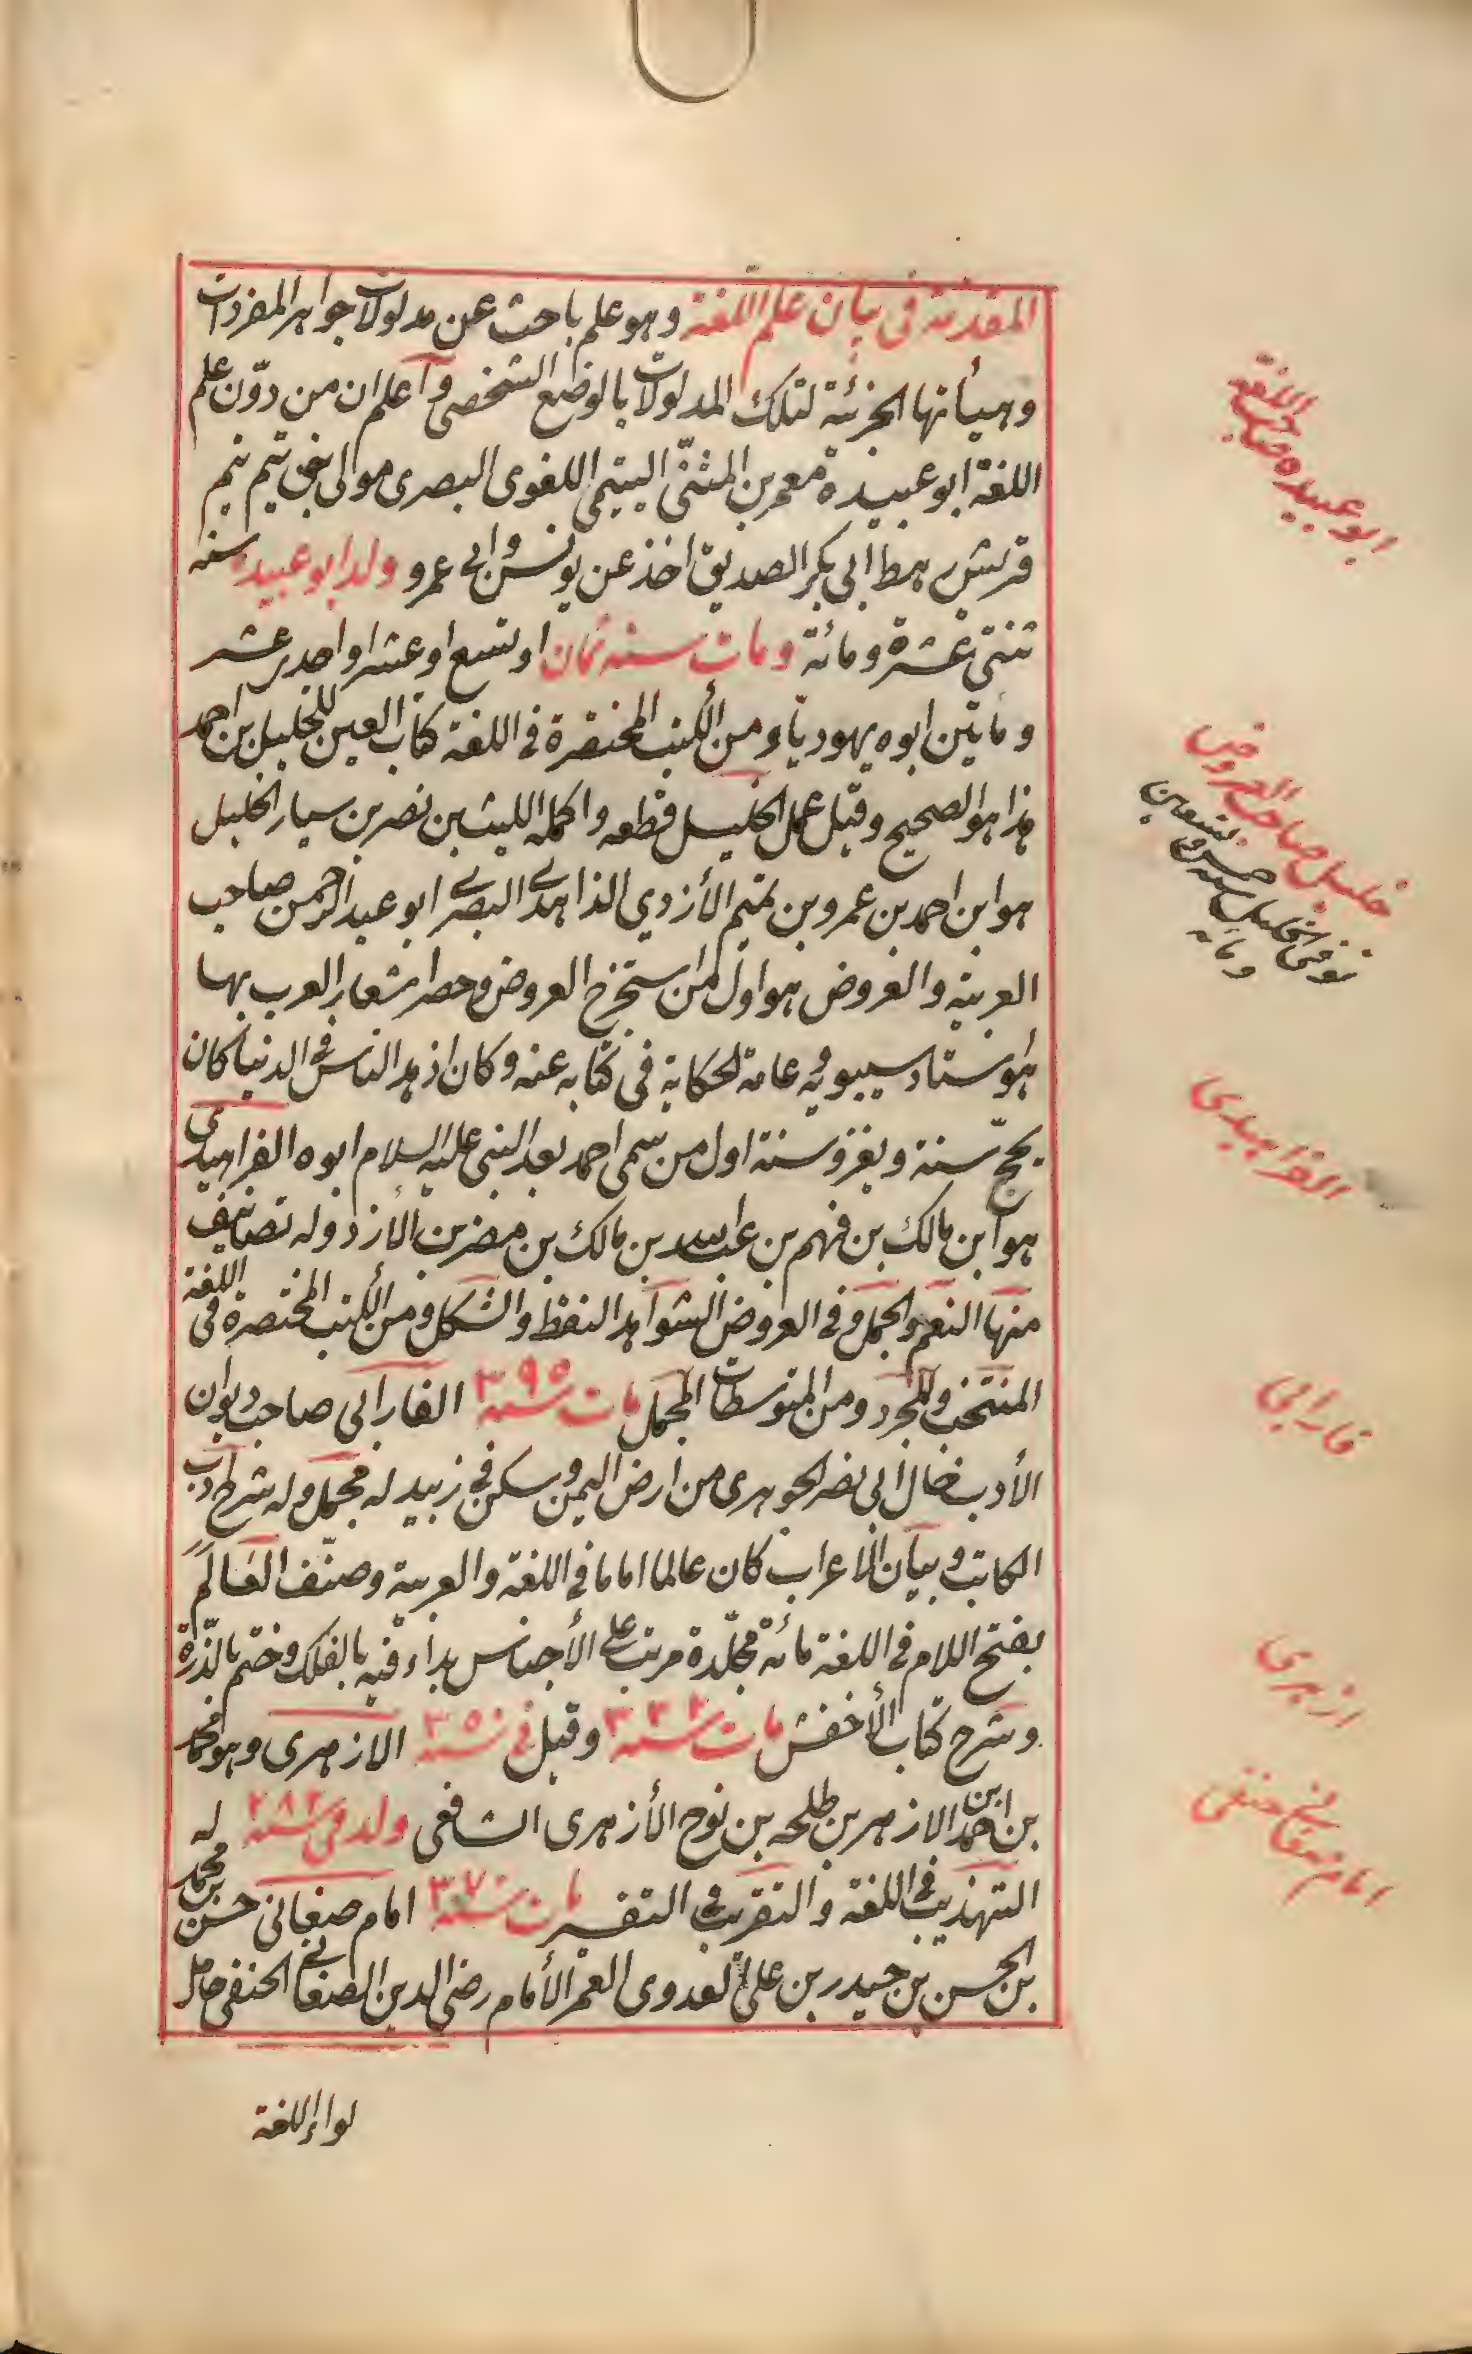 المقدمة فى بيان علم اللغة وهو علم باحث عن مدلولات جواهر المفردات
وهيأتها الجزئية لتلك المدلولات بالوضع الشخصى واعلم ان من دوّن علم
اللغة ابو عبيدة معمر بن المثنّى التيمى اللغوى البصرى مولى بنى تيم تيم
قريش رهط ابى بكر الصديق اخذ عن يونس وابى عمرو ولد ابو عبيدة سنة
ثنتى عشرة ومائة ومات سنة ثمان او تسع او عشر او احدى عشر
ومأتين ابوه يهوديا ومن الكتب المختصرة فى اللغة كتاب العين للخليل بن احمد
هذا هو الصحيح وقيل عمل الخليل قطعه واكمله الليث بن نصر بن سيار الخليل
هو ابن احمد بن عمرو بن تميم الأزدي الذاهدى البصرى ابو عبد الرحمن صاحب
العربية والعروض هو اول من استخرج العروض وحصر اشعار العرب بها
هو استاد سيبويه وعامة الحكاية فى كتابه عنه وكان ازهد الناس فى الدنيا كان
يحجّ سنة ويغزو سنة اول من سمى احمد بعد النبى عليه السلام ابوه الفراهيدى
هو ابن مالك بن فهم بن عبد الله بن مالك بن مضر بن الأزد وله تصانيف
منها النعم والجمل وفى العروض الشواهد النقط والشكل ومن الكتب المختصرة فى اللغة
المنتخب والمجرد ومن المتوسطات المجمل مات سنة ٣٩٥ الفارابى صاحب ديوان
الأدب خال ابى نصر الجوهرى من ارض اليمن وسكن فى زبيد له مجمل وله شرح ادب
الكاتب وبيان الاعراب كان عالما اماما فى اللغة والعربية وصنّف العَالَم
بفتح اللام فى اللغة مائة مجلّدة مرتب على الأجناس بداء فيه بالفلك وختم بالذّرة
وشرح كتاب الأخفش مات سنة ٣٣٢ وقيل فى سنة ٣٥٠ الازهرى وهو محمد
بن احمد ابن الازهر بن طلحه بن نوح الأزهرى الشافعى ولد فى سنة ٢٨٢ له
التهذيب فى اللغة والتقريب فى التفسير مات سنة ٣٧٠ امام صغانى حسن بن محمد
بن الحسن بن حيدر بن على العدوى العمر الأمام رضى الدين الصغانى الحنفى حامل
لواء اللغة
ابو عبيده صاحب اللغة
خليل صاحب العروض
توفى الخليل سنة خمس وسبعين
ومائة
الفراهيدى
فارابى
ازهرى
امام صغانى حنفى